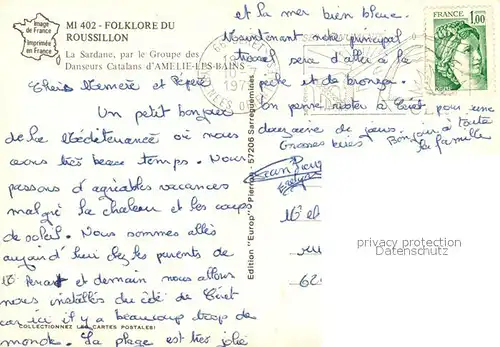 Image
de France
Imprimée
en France
MI 402 - FOLKLORE DU
ROUSSILLON
La Sardane, par le Groupe des
Danseurs Catalans d'AMELIE-LES-BAINS
Chers Mémère et Pépère
Un petit bonjour
de la Méditerranée où nous
avons très beau temps. Nous
passons d'agréables vacances
malgré la chaleur et les coups
de soleil. Nous sommes allés
aujourd'hui chez les parents de
et demain nous allons
nous installer du côté de Céret
car ici il y a beaucoup trop de
monde. La plage est très jolie
COLLECTIONNEZ LES CARTES POSTALES!
et la mer bien bleue.
Maintenant notre principal
travail sera d'aller à la
pêche et de bronzer.
On pense rester à Céret pour une
douzaine de jours. Bonjour à toute
la famille
Grosses bises
Edition "Europ" Pierron - 57206 Sarreguemines
FRANCE
1,00
62
privacy protection
AKPOOL.DE